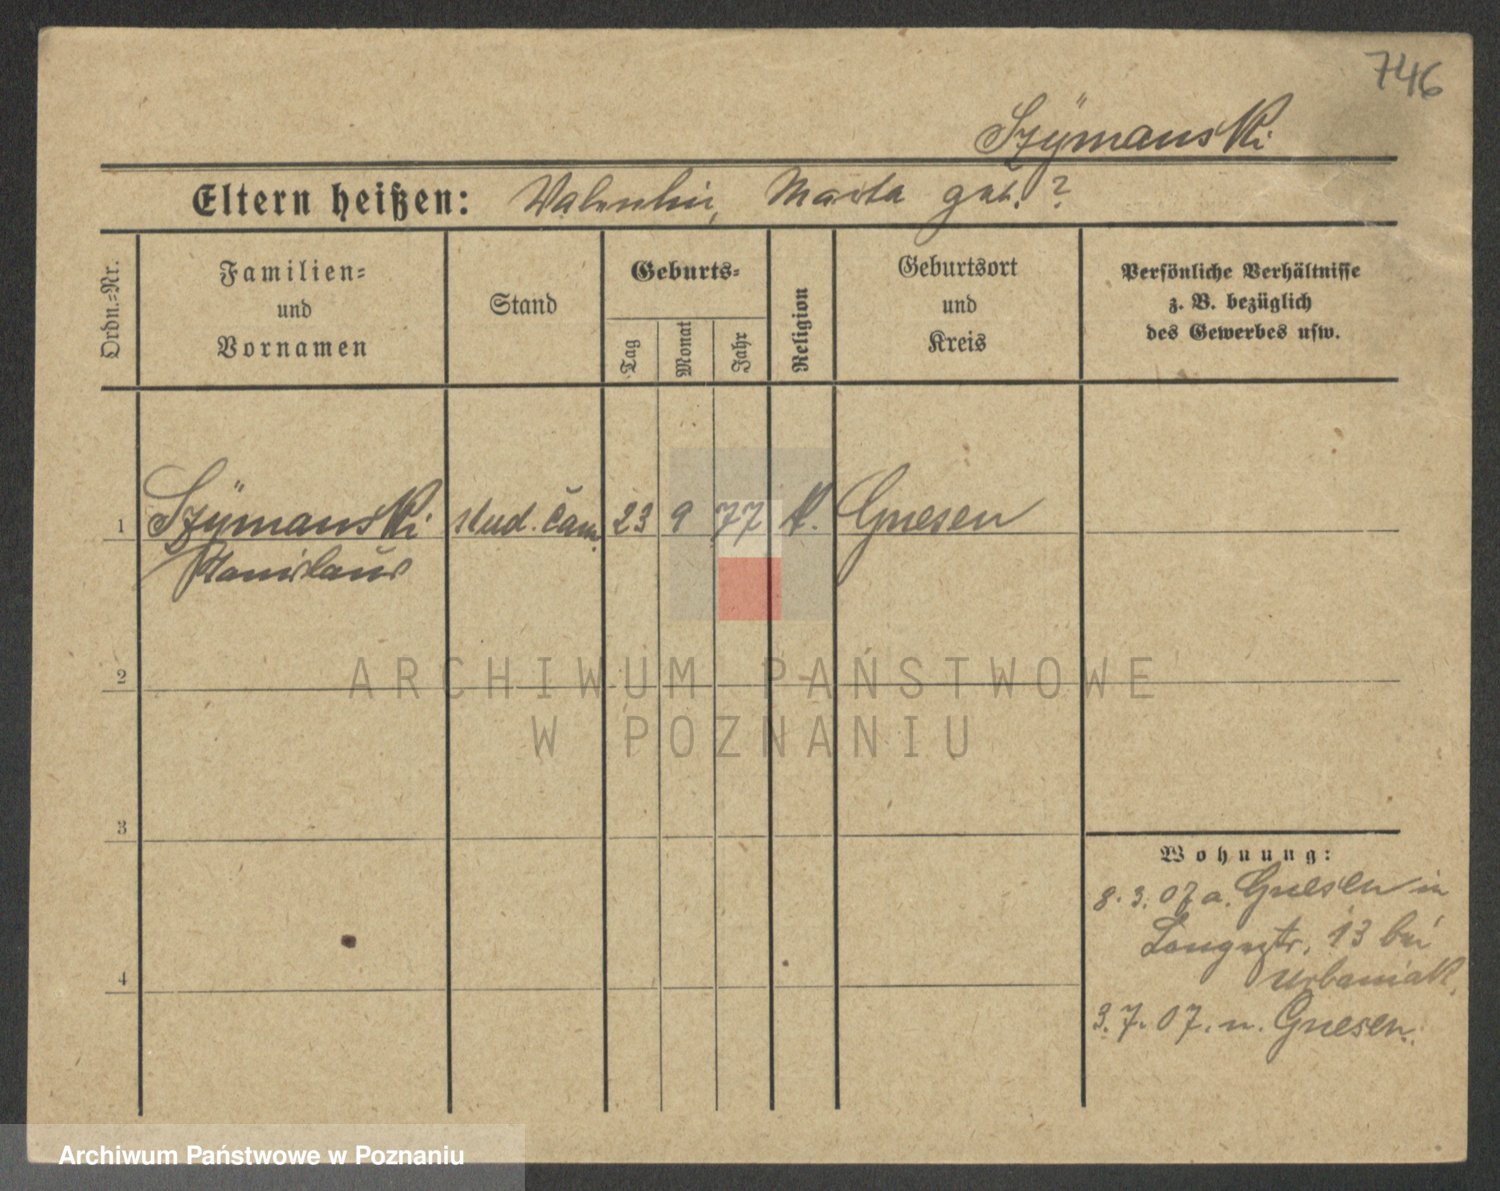 746
Szÿmanski
Eltern heißen: Valentin, Marta geb. ?
Ordn.=Nr.
Familien=
und
Vornamen
Stand
Geburts=
Tag
Monat
Jahr
Religion
Geburtsort
und
Kreis
Persönliche Verhältnisse
z. B. bezüglich
des Gewerbes usw.
1 Szÿmanski stud. cam. 23 9 77 k. Gnesen
Stanislaus
2
3
4
Wohnung:
8. 3. 07 a. Gnesen in
Langestr. 13 bei
Urbaniak.
3. 7. 07. n. Gnesen.
ARCHIWUM PAŃSTWOWE
W POZNANIU
Archiwum Państwowe w Poznaniu